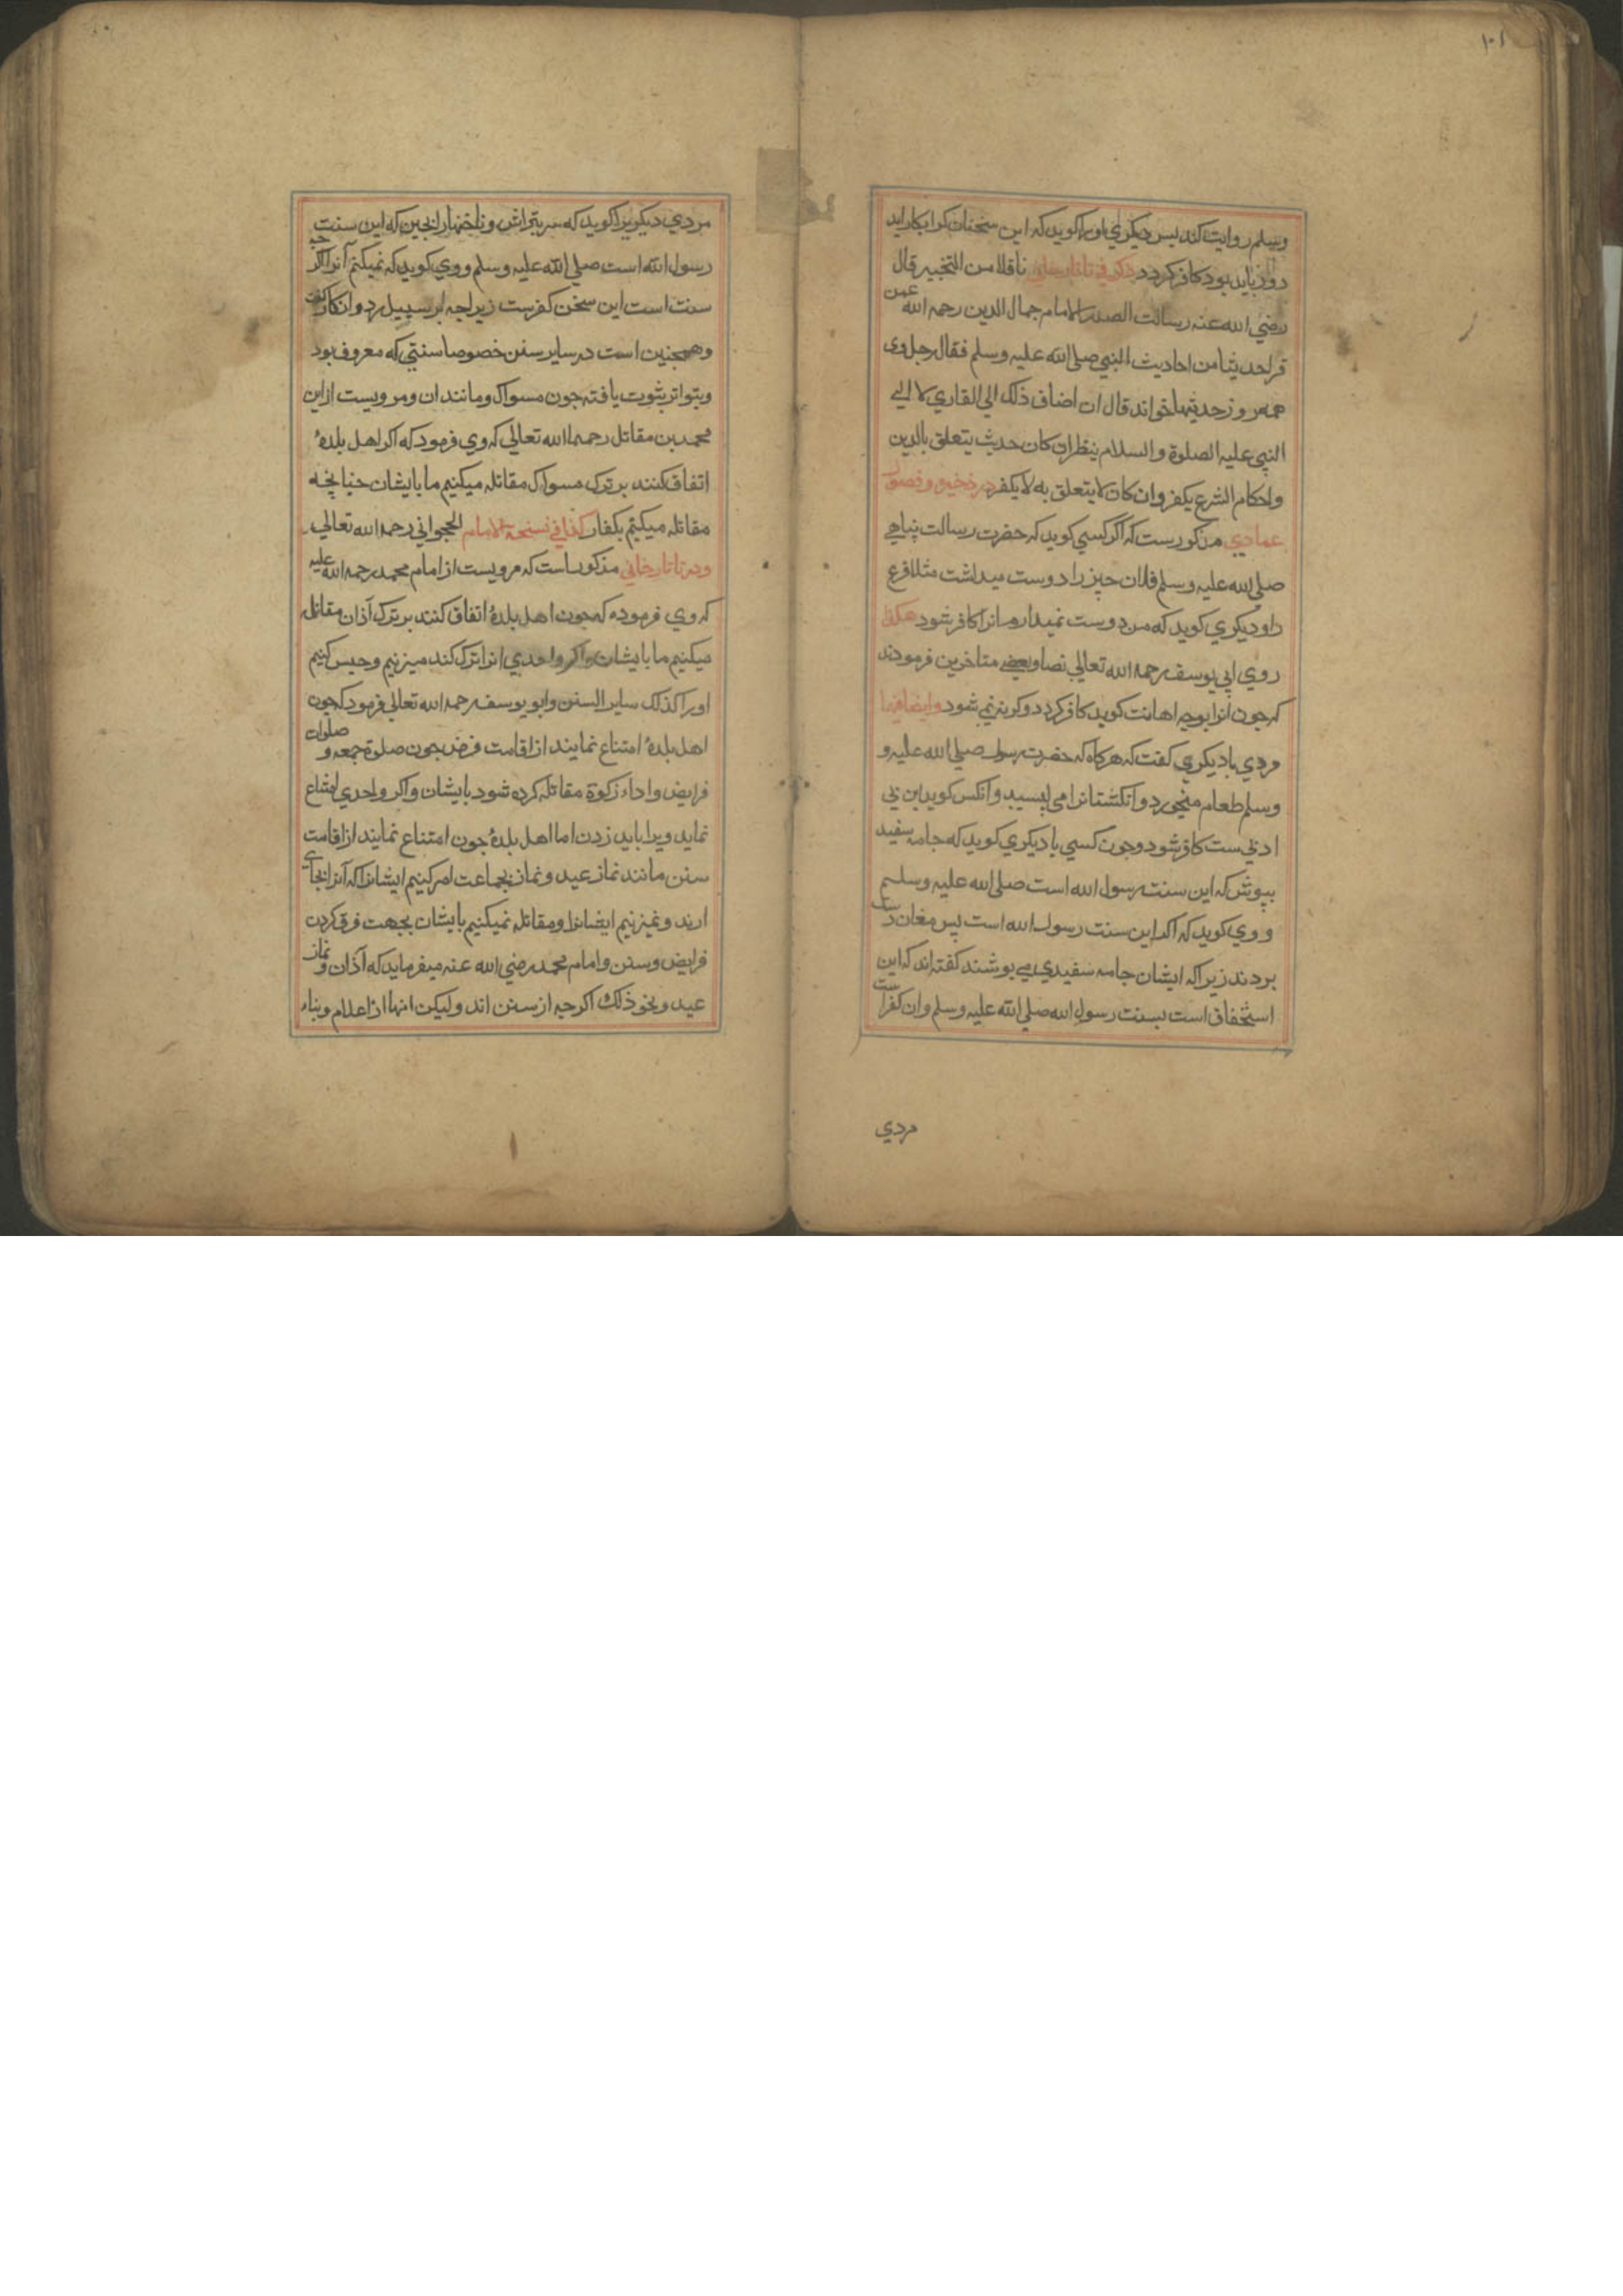 ١٠١
وسلم روایت کند پس دیکری اورا کوید که این سخنان کرا بکار اید
دروز باید بود کافر کردد ذکر فی تاتارخانی ناقلا من التخییر قال
رضی الله عنه رسالت الصدر الامام جمال الدین رحمه الله عمن
قرا حدیثا من احادیث النبی صلی الله علیه وسلم فقال رجل وی
همه روز حدیثها خواند قال ان اضاف ذلک الی القاری لا الی
النبی علیه الصلوة والسلام ینظر ان کان حدیث یتعلق بالدین
واحکام الشرع یکفر وان کان لا یتعلق به لا یکفر در ذخیره وفصول
عمادی مذکورست که اکر کسی کوید که حضرت رسالت پناهی
صلی الله علیه وسلم فلان چیز را دوست میداشت مثلا قرع
را و دیکری کوید که من دوست نمیدارم انرا کافر شود هکذا
روی ابی یوسف رحمه الله تعالی نصا وبعضی متاخرین فرمودند
که جون انرا بوجه اهانت کوید کافر کردد وکرنه نمی شود وایضا فیها
مردی با دیکری کفت که هرکاه که حضرت رسول صلی الله علیه و
وسلم طعام میخورد وانکشتانرا می لیسید وانکس کوید این بی
ادبی ست کافر شود وجون کسی با دیکری کوید که جامه سفید
بپوش که این سنت رسول الله است صلی الله علیه وسلم
و وی کوید که اکر این سنت رسول الله است پس مغان
بردند زیرا که ایشان جامه سفیدی می پوشند کفته اند که این
استخفاف است بسنت رسول الله صلی الله علیه وسلم وان کفر است
مردی
مردی دیکریرا کوید که سر بتراش وناخنها را بچین که این سنت
رسول الله است صلی الله علیه وسلم ووی کوید که نمیکنم آنرا اکر چه
سنت است این سخن کفرست زیرا چه بر سبیل رد وانکار کفت
وهمچنین است در سایر سنن خصوصا سنتی که معروف بود
وبتواتر ثبوت یافته جون مسواک ومانند ان ومرویست از این
محمد بن مقاتل رحمه الله تعالی که وی فرمود که اکر اهل بلدهٔ
اتفاق کنند بر ترک مسواک مقاتله میکنیم ما بایشان چنانچه
مقاتله میکنیم بکفار کذا فی نسخة الامام الحجوانی رحمه الله تعالی
ودر تاتارخانی مذکور است که مرویست از امام محمد رحمه الله علیه
که وی فرموده که جون اهل بلدهٔ اتفاق کنند بر ترک آذان مقاتله
میکنیم ما بایشان واکر واحدی انرا ترک کند میزنیم وحبس کنیم
اورا کذلک سایر السنن وابو یوسف رحمه الله تعالی فرمود که جون
اهل بلدهٔ امتناع نمایند از اقامت فرض جون صلوة جمعه و صلوات
فرایض واداء زکوة مقاتله کرده شود بایشان واکر واحدی امتناع
نماید ویرا باید زدن اما اهل بلدهٔ جون امتناع نمایند از اقامت
سنن مانند نماز عید ونماز بجماعت امر کنیم ایشانرا که آنرا بجای
ارند ونمیزنیم ایشانرا ومقاتله نمیکنیم بایشان بجهت فرق کردن
فرایض وسنن وامام محمد رضی الله عنه میفرماید که آذان و نماز
عید ونحو ذلک اکرچه از سنن اند ولیکن انها از اعلام وبناء